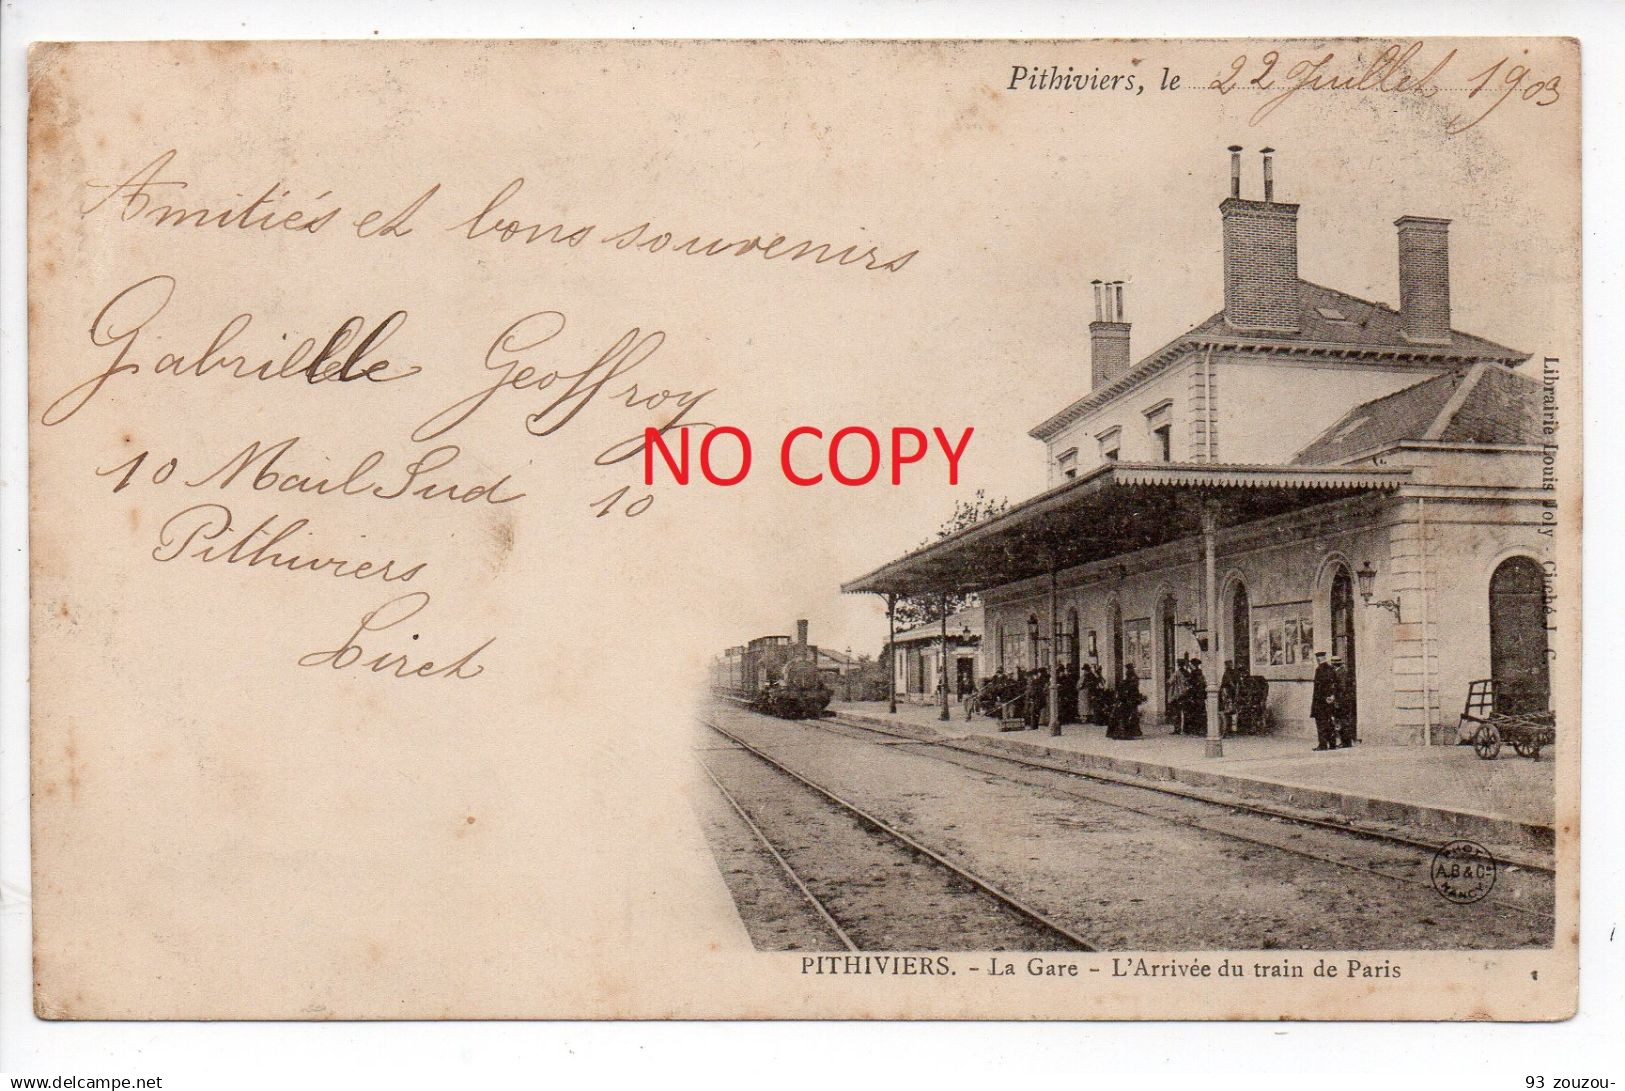 Pithiviers, le 22 Juillet 1903
Amitiés et bons souvenirs
Gabrielle Geoffroy
10 Mail Sud 10
Pithiviers
Loiret
NO COPY
Librairie Louis Joly - Cliché L. C.
PHOT
A.B & Cie
NANCY
PITHIVIERS. - La Gare - L'Arrivée du train de Paris
delcampe.net
93 zouzou-